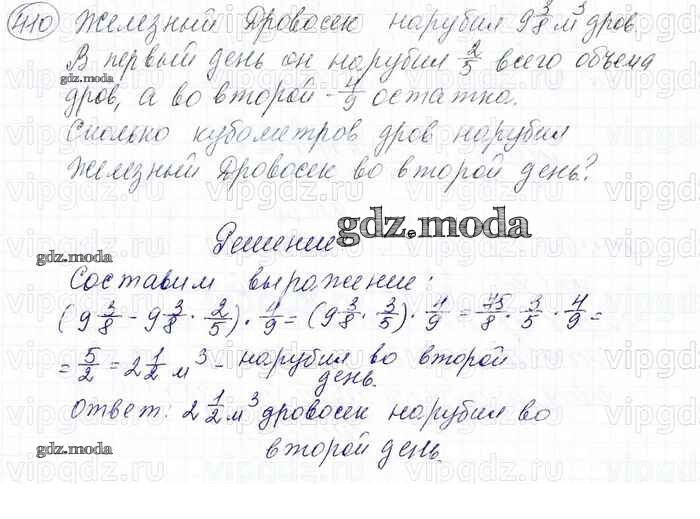 410 Железный Дровосек нарубил 9 3/8 м³ дров.
В первый день он нарубил 2/5 всего объема
gdz.moda
дров, а во второй - 4/9 остатка.
Сколько кубометров дров нарубил
Железный Дровосек во второй день?
gdz.moda
Решение
gdz.moda
Составим выражение:
(9 3/8 - 9 3/8 · 2/5) · 4/9 = (9 3/8 · 3/5) · 4/9 = 75/8 · 3/5 · 4/9 =
= 5/2 = 2 1/2 м³ - нарубил во второй
день.
Ответ: 2 1/2 м³ дровосек нарубил во
gdz.moda
второй день.
vipgdz.ru